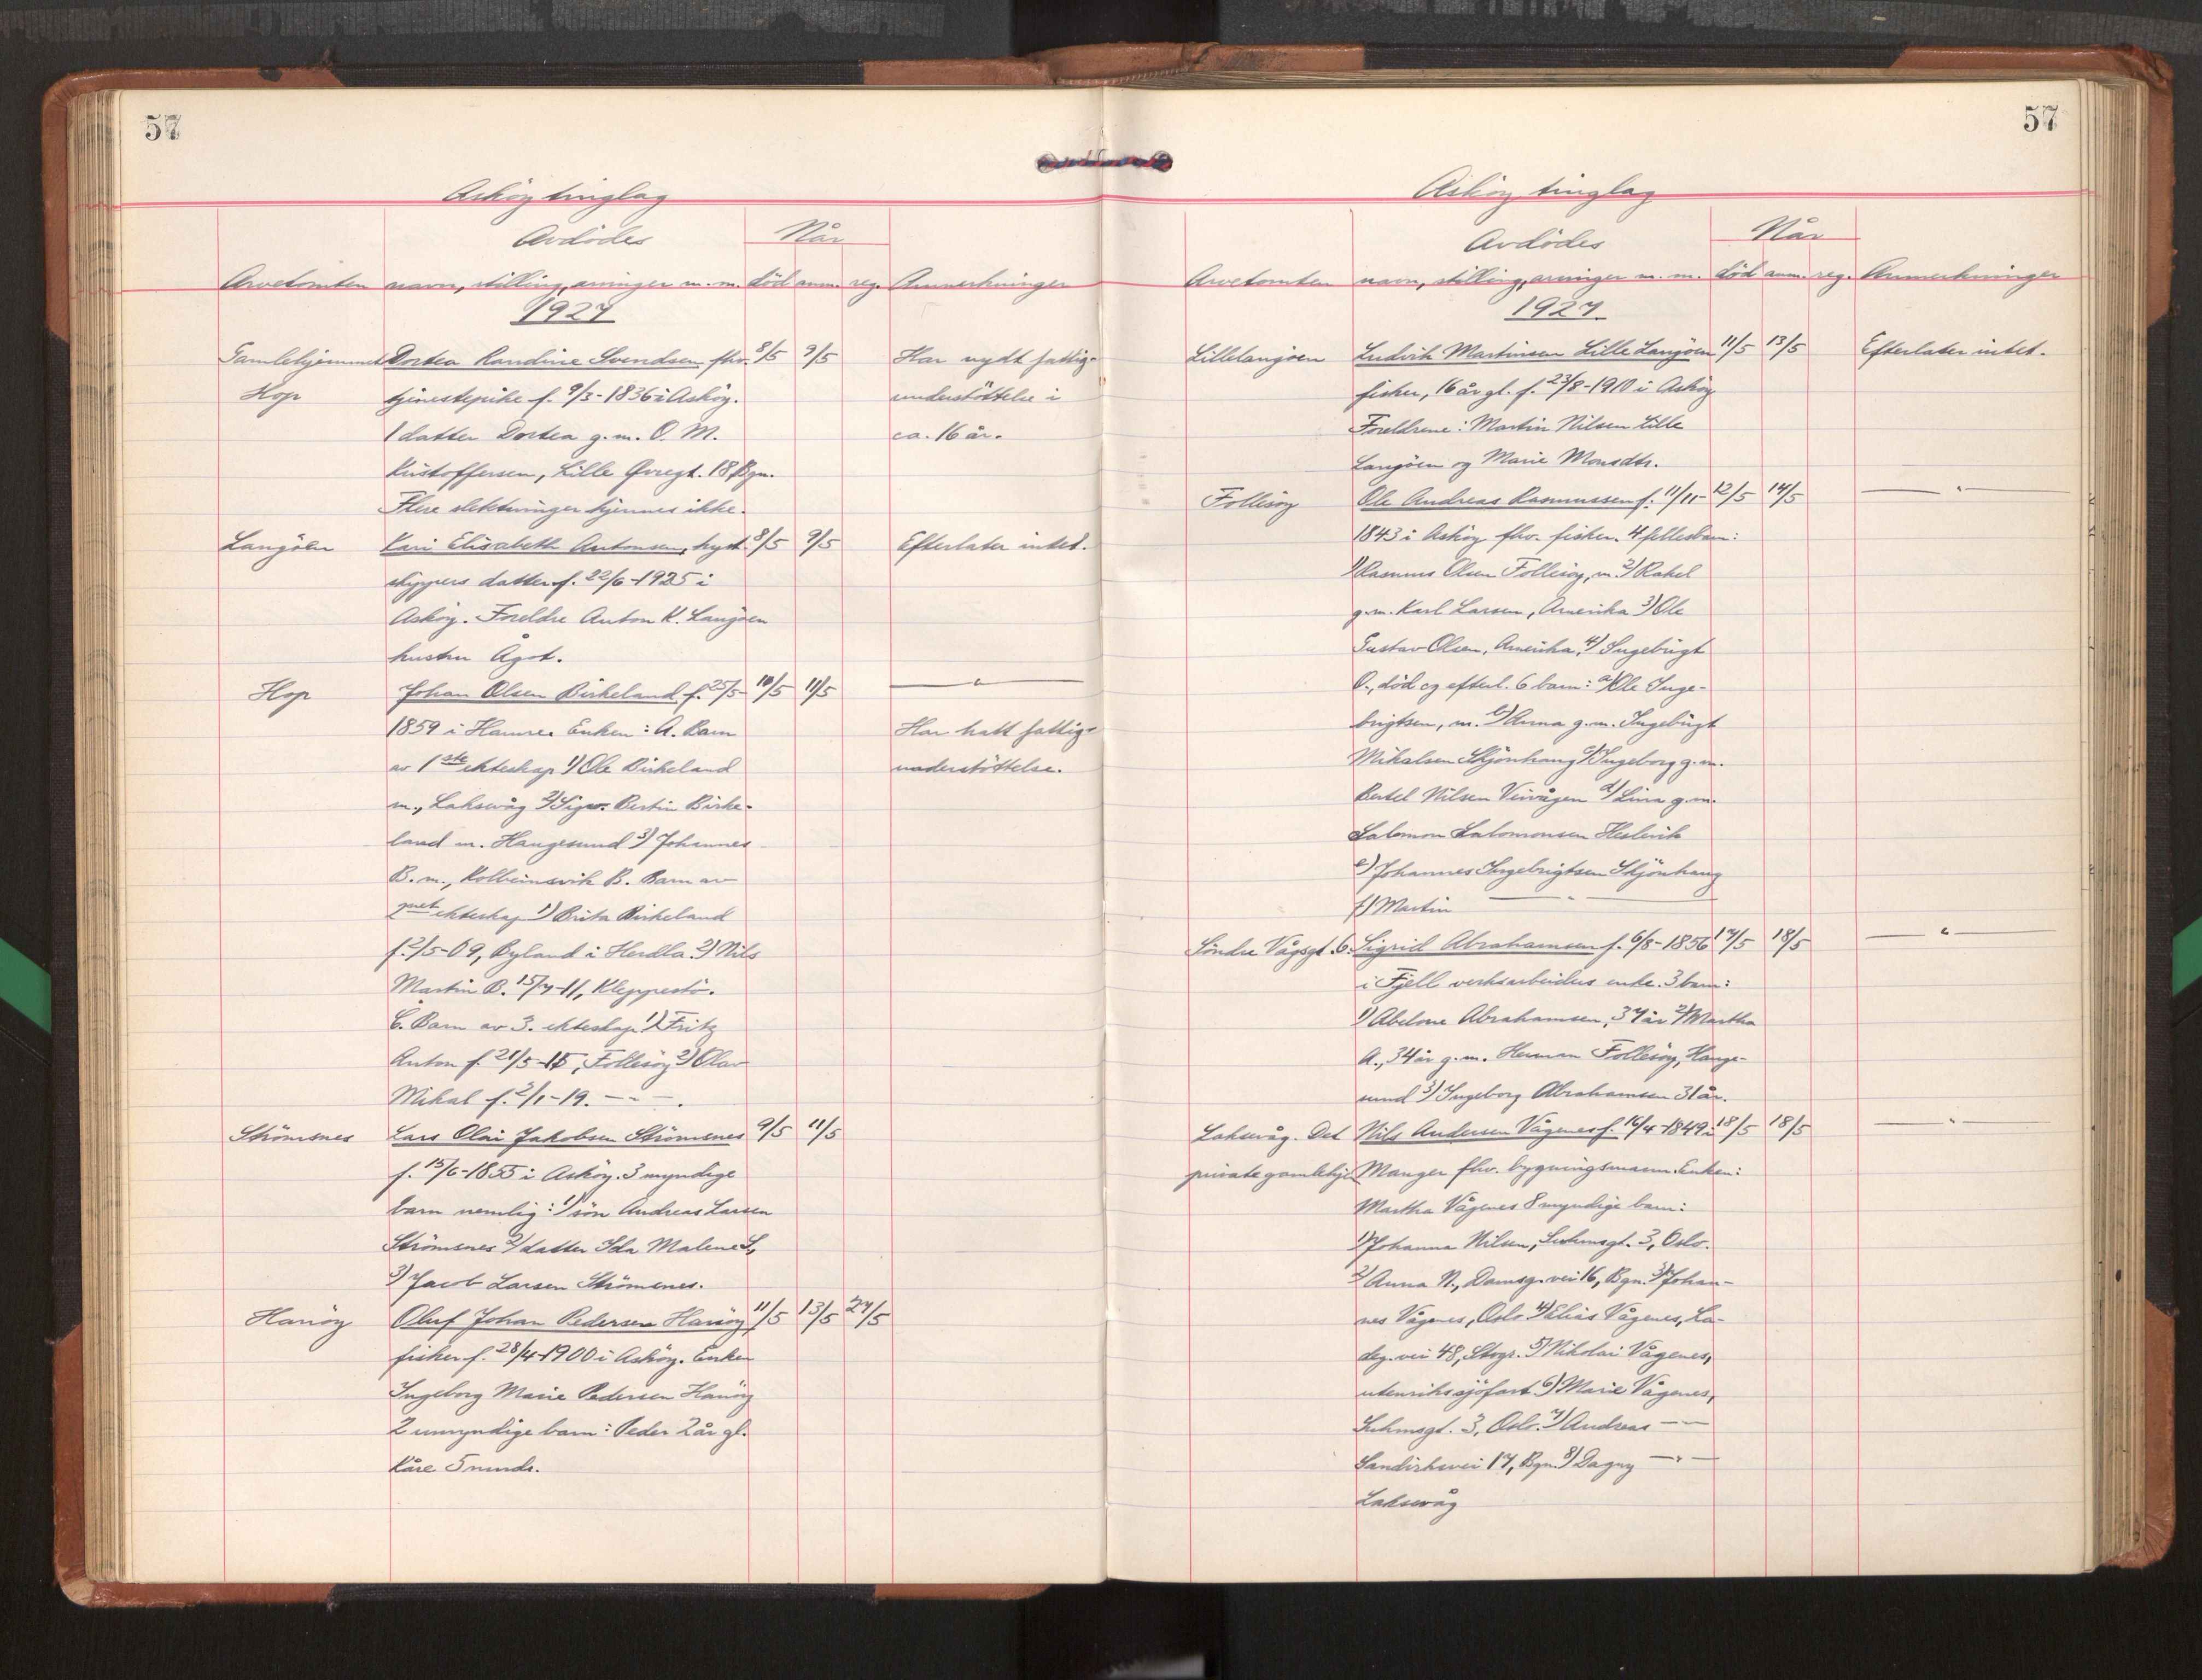 57
Asköy tinglag
Avdödes
Når
Arvetomten navn, stilling, arvinger m. m. död anm. reg. Anmerkninger
1927
Gamlehjemmet Dortea Randine Svendsen fhv. 8/5 9/5 Har nydt fattig-
Hop tjenestepike f. 9/3-1836 i Asköy. understöttelse i
1 datter Dortea g.m. O. M. ca. 16 år.
Kristoffersen, Lille Øvregt. 18 Bgn.
Flere slektninger kjennes ikke.
Langöen Kari Elisabeth Antonsen, kyst 8/5 9/5 Efterlater intet.
skippers datter f. 22/6-1925 i
Asköy. Foreldre Anton K. Langöen
hustru Ågot.
Hop Johan Olsen Birkeland f. 25/5- 10/5 11/5 — " —
1859 i Hamre. Enken: A. Barn Har hatt fattig-
av 1ste ekteskap 1) Ole Birkeland understöttelse.
m., Laksevåg 2) Bertin Birke-
land m. Haugesund 3) Johannes
B. m., Kolbeinsvik B. Barn av
2net ekteskap 1) Brita Birkeland
f. 2/5-09, Byland i Herdla. 2) Nils
Martin B. 15/7-11, Kleppestö.
C. Barn av 3. ekteskap 1) Fritz
Anton f. 21/5-15, Follesöy 2) Olav
Mikal f. 2/1-19. — " —.
Strömsnes Lars Olai Jakobsen Strömsnes 9/5 11/5
f. 15/6-1855 i Asköy. 3 myndige
barn nemlig: 1) sön Andreas Larsen
Strömsnes 2) datter Ida Malene S,
3) Jacob Larsen Strömsnes.
Hanöy Oluf Johan Pedersen Hanöy 11/5 13/5 27/5
fisker f. 28/4-1900 i Asköy. Enken
Ingeborg Marie Pedersen Hanöy
2 umyndige barn: Peder 2 år gl.
Kåre 5 mndr.
57
Asköy tinglag
Avdödes
Når
Arvetomten navn, stilling, arvinger m. m. död anm. reg. Anmerkninger
1927.
Lillelangöen Ludvik Martinsen Lille Langöen 11/5 13/5 Efterlater intet.
fisker, 16 år gl. f. 23/8-1910 i Asköy
Foreldrene: Martin Nilsen Lille
Langöen og Marie Monsdtr.
Follesöy Ole Andreas Rasmussen f. 11/11- 12/5 14/5 — " —
1843 i Asköy fhv. fisker. 4 fellesbarn:
1) Rasmus Olsen Follesöy, m. 2) Rakel
g.m. Karl Larsen, Amerika 3) Ole
Gustav Olsen, Amerika, 4) Ingebrigt
O., död og efterl. 6 barn: a) Ole Inge-
brigtsen, m. b) Anna g.m. Ingebrigt
Mikalsen Skjönhaug c) Ingeborg g.m.
Bertel Nilsen Veivågen d) Lina g.m.
Salomon Salomonsen Heslevik
e) Johannes Ingebrigtsen Skjönhaug
f) Martin — " —
Söndre Vågsgt. 6. Sigrid Abrahamsen f. 6/8-1856 17/5 18/5 — " —
i Fjell verksarbeiders enke. 3 barn:
1) Abelone Abrahamsen, 37 år 2) Martha
A., 34 år g.m. Herman Follesöy, Hauge-
sund 3) Ingeborg Abrahamsen 31 år.
Laksevåg. Det Nils Andersen Vågenes f. 16/4-1849 i 18/5 18/5 — " —
private gamlehj. Manger fhv. bygningsmann. Enken:
Martha Vågenes 8 myndige barn:
1) Johanna Nilsen, Suhmsgt. 3, Oslo.
2) Anna N., Damsg. vei 16, Bgn. 3) Johan-
nes Vågenes, Oslo 4) Elias Vågenes, La-
deg. vei 48, 5) Nikolai Vågenes,
utenriks sjöfart 6) Marie Vågenes,
Suhmsgt. 3, Oslo. 7) Andreas — " —
Sandviksvei 17, Bgn. 8) Dagny — " —
Laksevåg